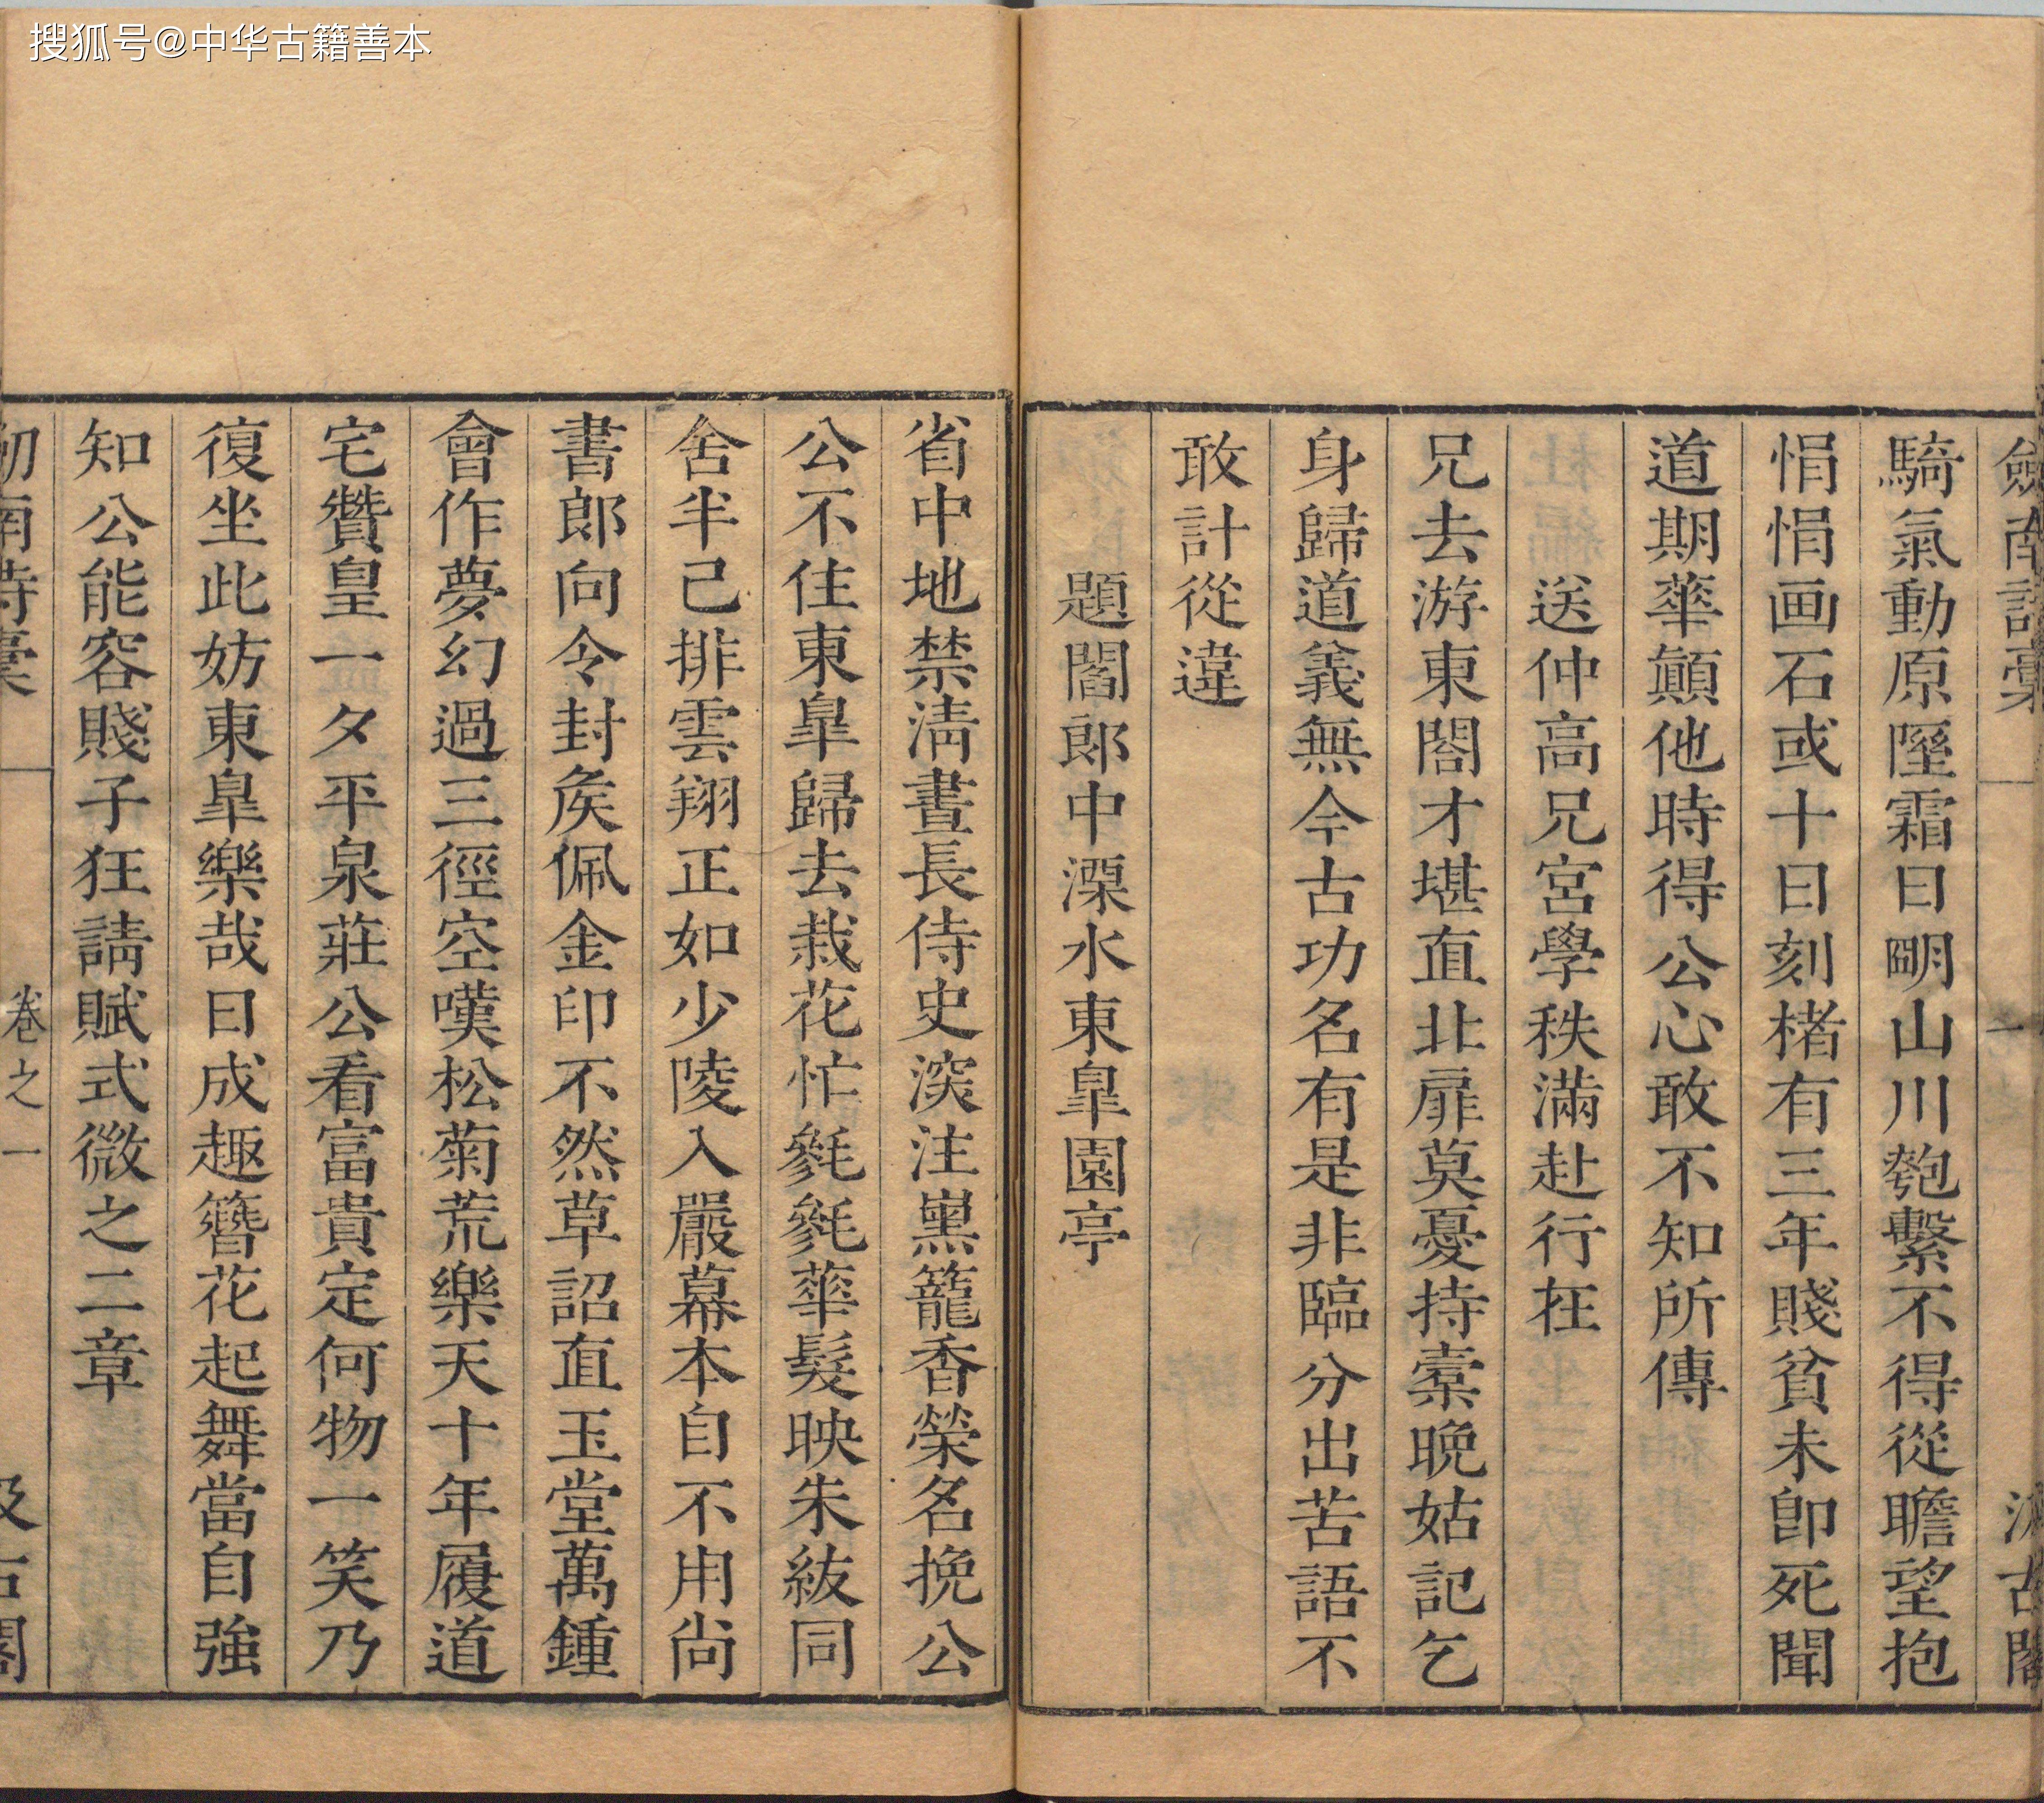 搜狐号@中华古籍善本
劒南詩稾
一
汲古閣
騎氣動原隰霜日明山川匏繫不得從瞻望抱
悁悁画石或十日刻楮有三年賤貧未卽死聞
道期華顛他時得公心敢不知所傳
送仲高兄宮學秩滿赴行在
兄去游東閤才堪直北扉莫憂持橐晚姑記乞
身歸道義無今古功名有是非臨分出苦語不
敢計從違
題閻郎中溧水東皐園亭
省中地禁淸晝長侍史深注熏籠香榮名挽公
公不住東皐歸去栽花忙毿毿華髮映朱紱同
舍半已排雲翔正如少陵入嚴幕本自不用尚
書郎向令封矦佩金印不然草詔直玉堂萬鍾
會作夢幻過三徑空嘆松菊荒樂天十年履道
宅贊皇一夕平泉莊公看富貴定何物一笑乃
復坐此妨東皐樂哉日成趣簪花起舞當自強
知公能容賤子狂請賦式微之二章
劒南詩稾
卷之一
汲古閣